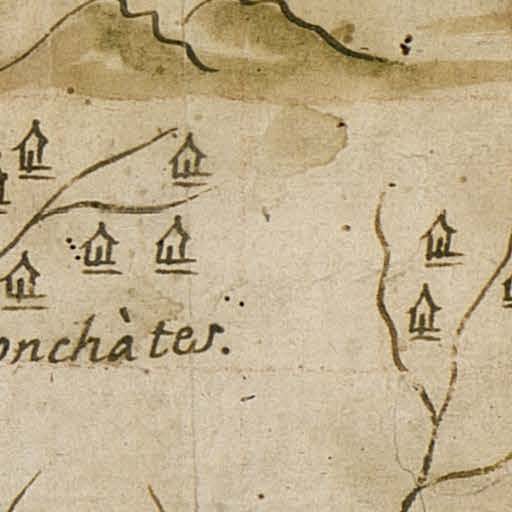 onchàtes.